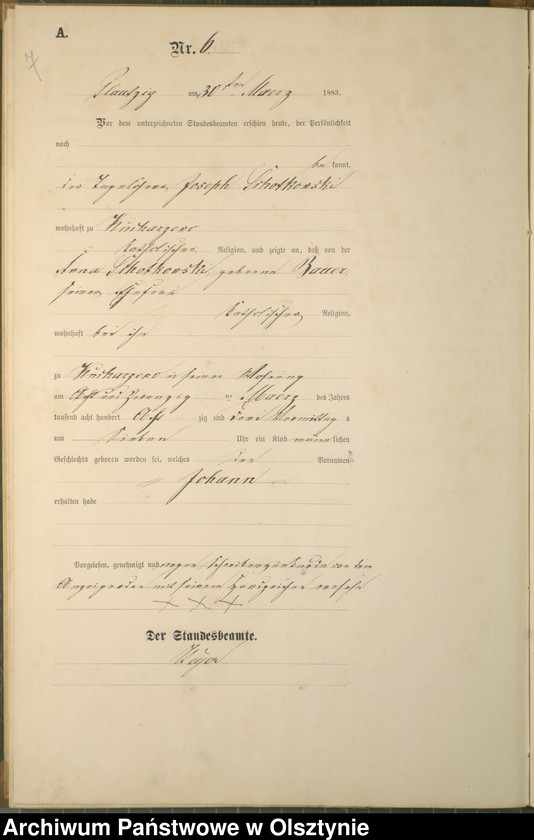 A.
7
Nr. 6.
Plautzig am 30ten Maerz 1883.
Vor dem unterzeichneten Standesbeamten erschien heute, der Persönlichkeit
nach
be kannt,
der Tagelöhner Joseph Schotkowski
wohnhaft zu Kucharzewo
katholischer Religion, und zeigte an, daß von der
Anna Schotkowski geborene
seiner Ehefrau
katholischer Religion,
wohnhaft bei ihm
zu Kucharzewo in seiner Wohnung
am Acht und zwanzig ten Maerz des Jahres
tausend acht hundert Acht zig und drei Vormittags
um Sieben Uhr ein Kind männlichen
Geschlechts geboren worden sei, welches den Vornamen
Johann
erhalten habe
Vorgelesen, genehmigt und wegen Schreibensunkunde von dem
Anzeigenden mit seinem Handzeichen versehn
X X X
Der Standesbeamte.
Archiwum Państwowe w Olsztynie